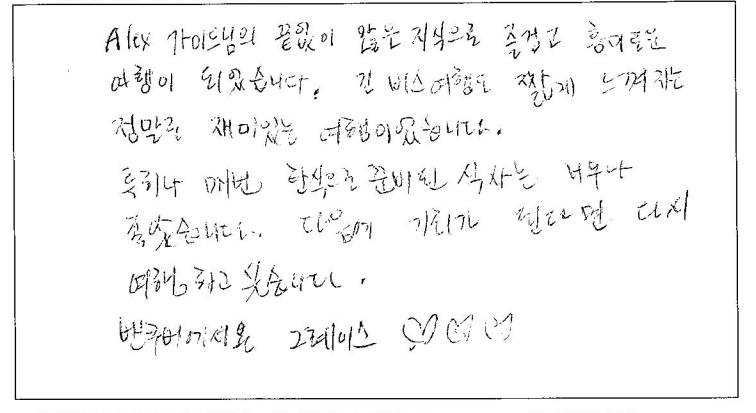 Alex 가이드님의 끝없이 많은 지식으로 즐겁고 흥미로운
여행이 되었습니다. 긴 버스여행도 짧게 느껴지는
정말로 재미있는 여행이었습니다.
특히나 매번 한식으로 준비된 식사는 너무나
좋았습니다. 다음에 기회가 된다면 다시
여행하고 싶습니다.
밴쿠버에서온 그레이스